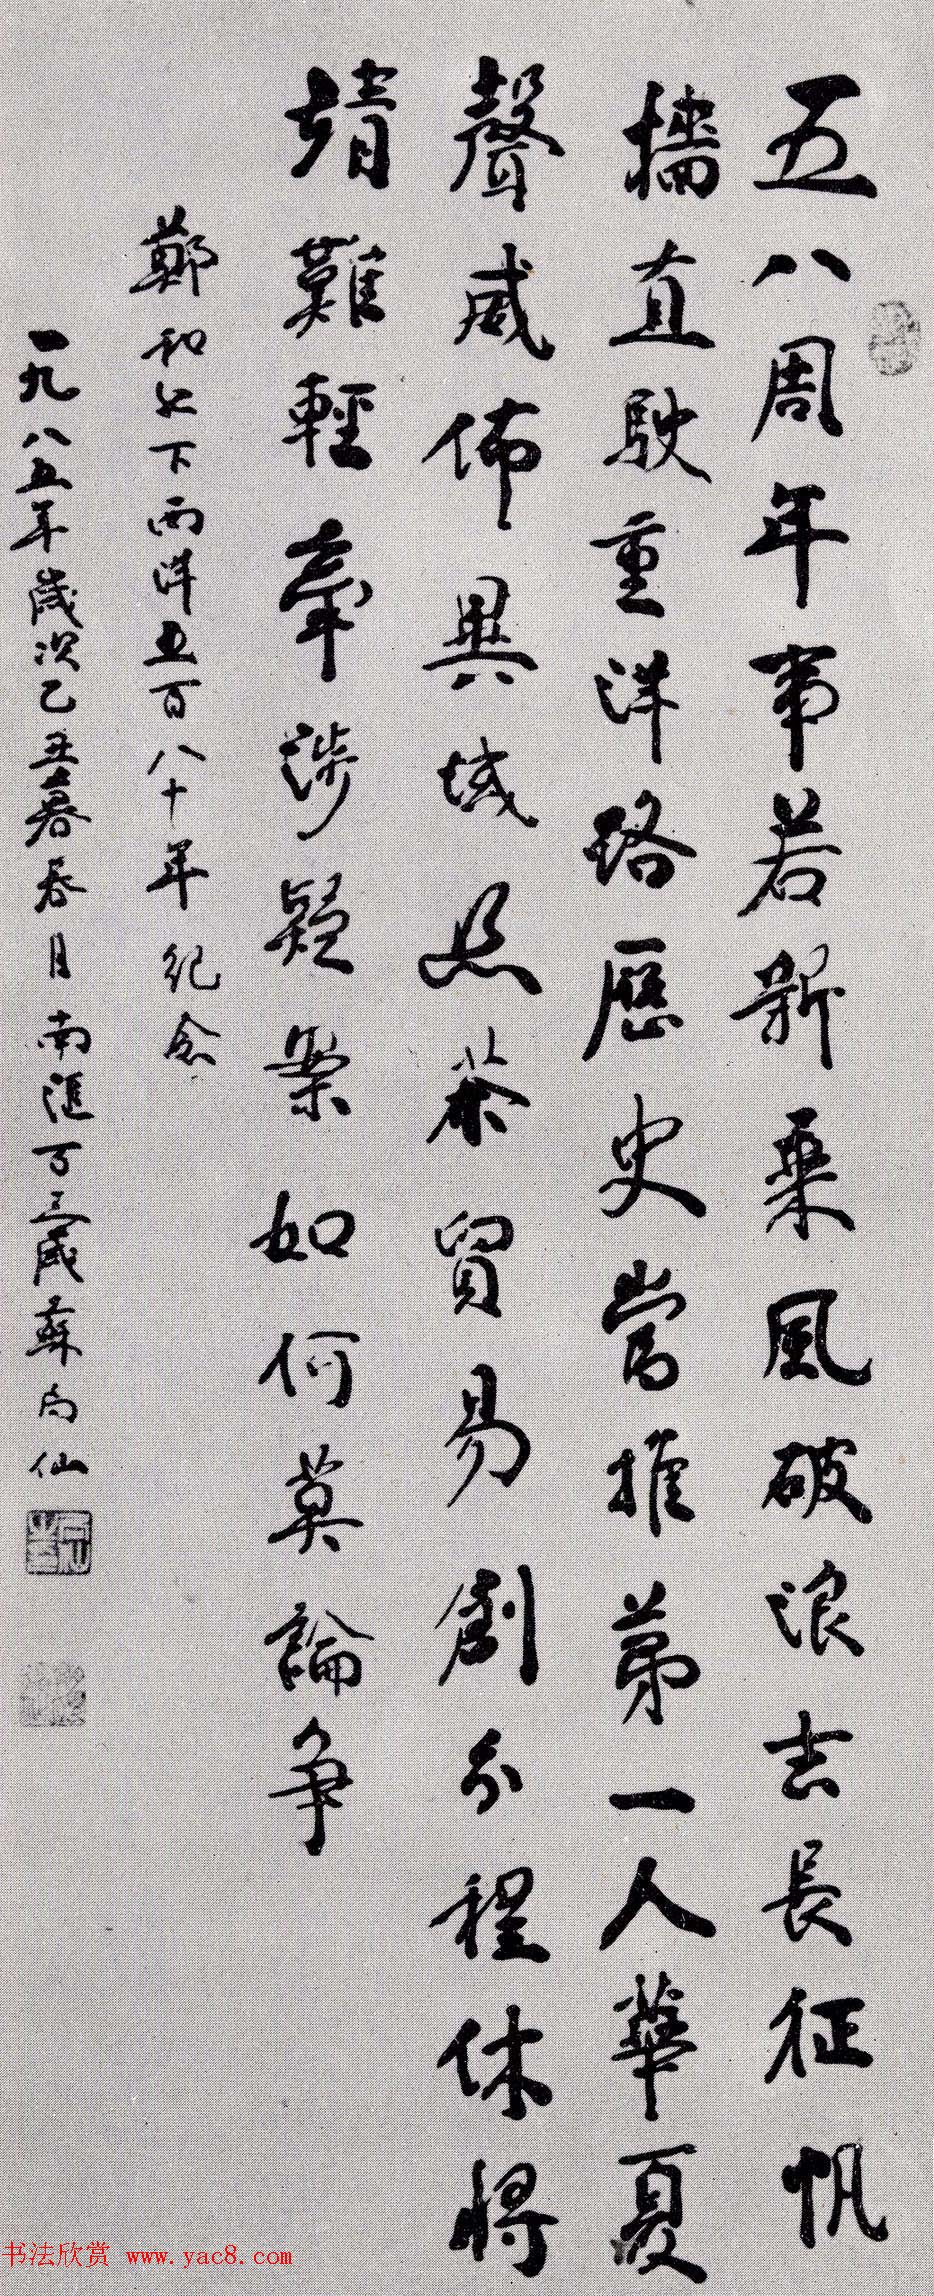 五八周年事若新乘風破浪志長征帆
檣直駛重洋路歷史當推第一人華夏
聲威佈異域絲茶貿易創分程休將
靖難輕牽涉疑案如何莫論爭
鄭和七下西洋五百八十年紀念
一九八五年歲次乙丑暮春月南滙百三歲蘇局仙
书法欣赏 www.yac8.com